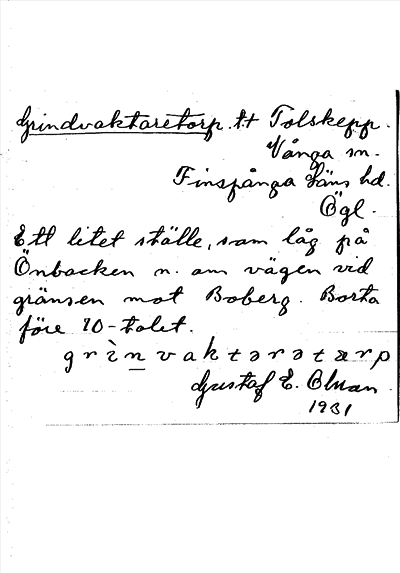 Grindvaktaretorp. t.t Tolskepp.
Vånga sn.
Finspånga läns hd.
Ögl.
Ett litet ställe, som låg på
Önbacken n. om vägen vid
gränsen mot Boberg. Borta
före 70-talet.
grìnvaktərətærp
Gustaf E. Ohman
1931